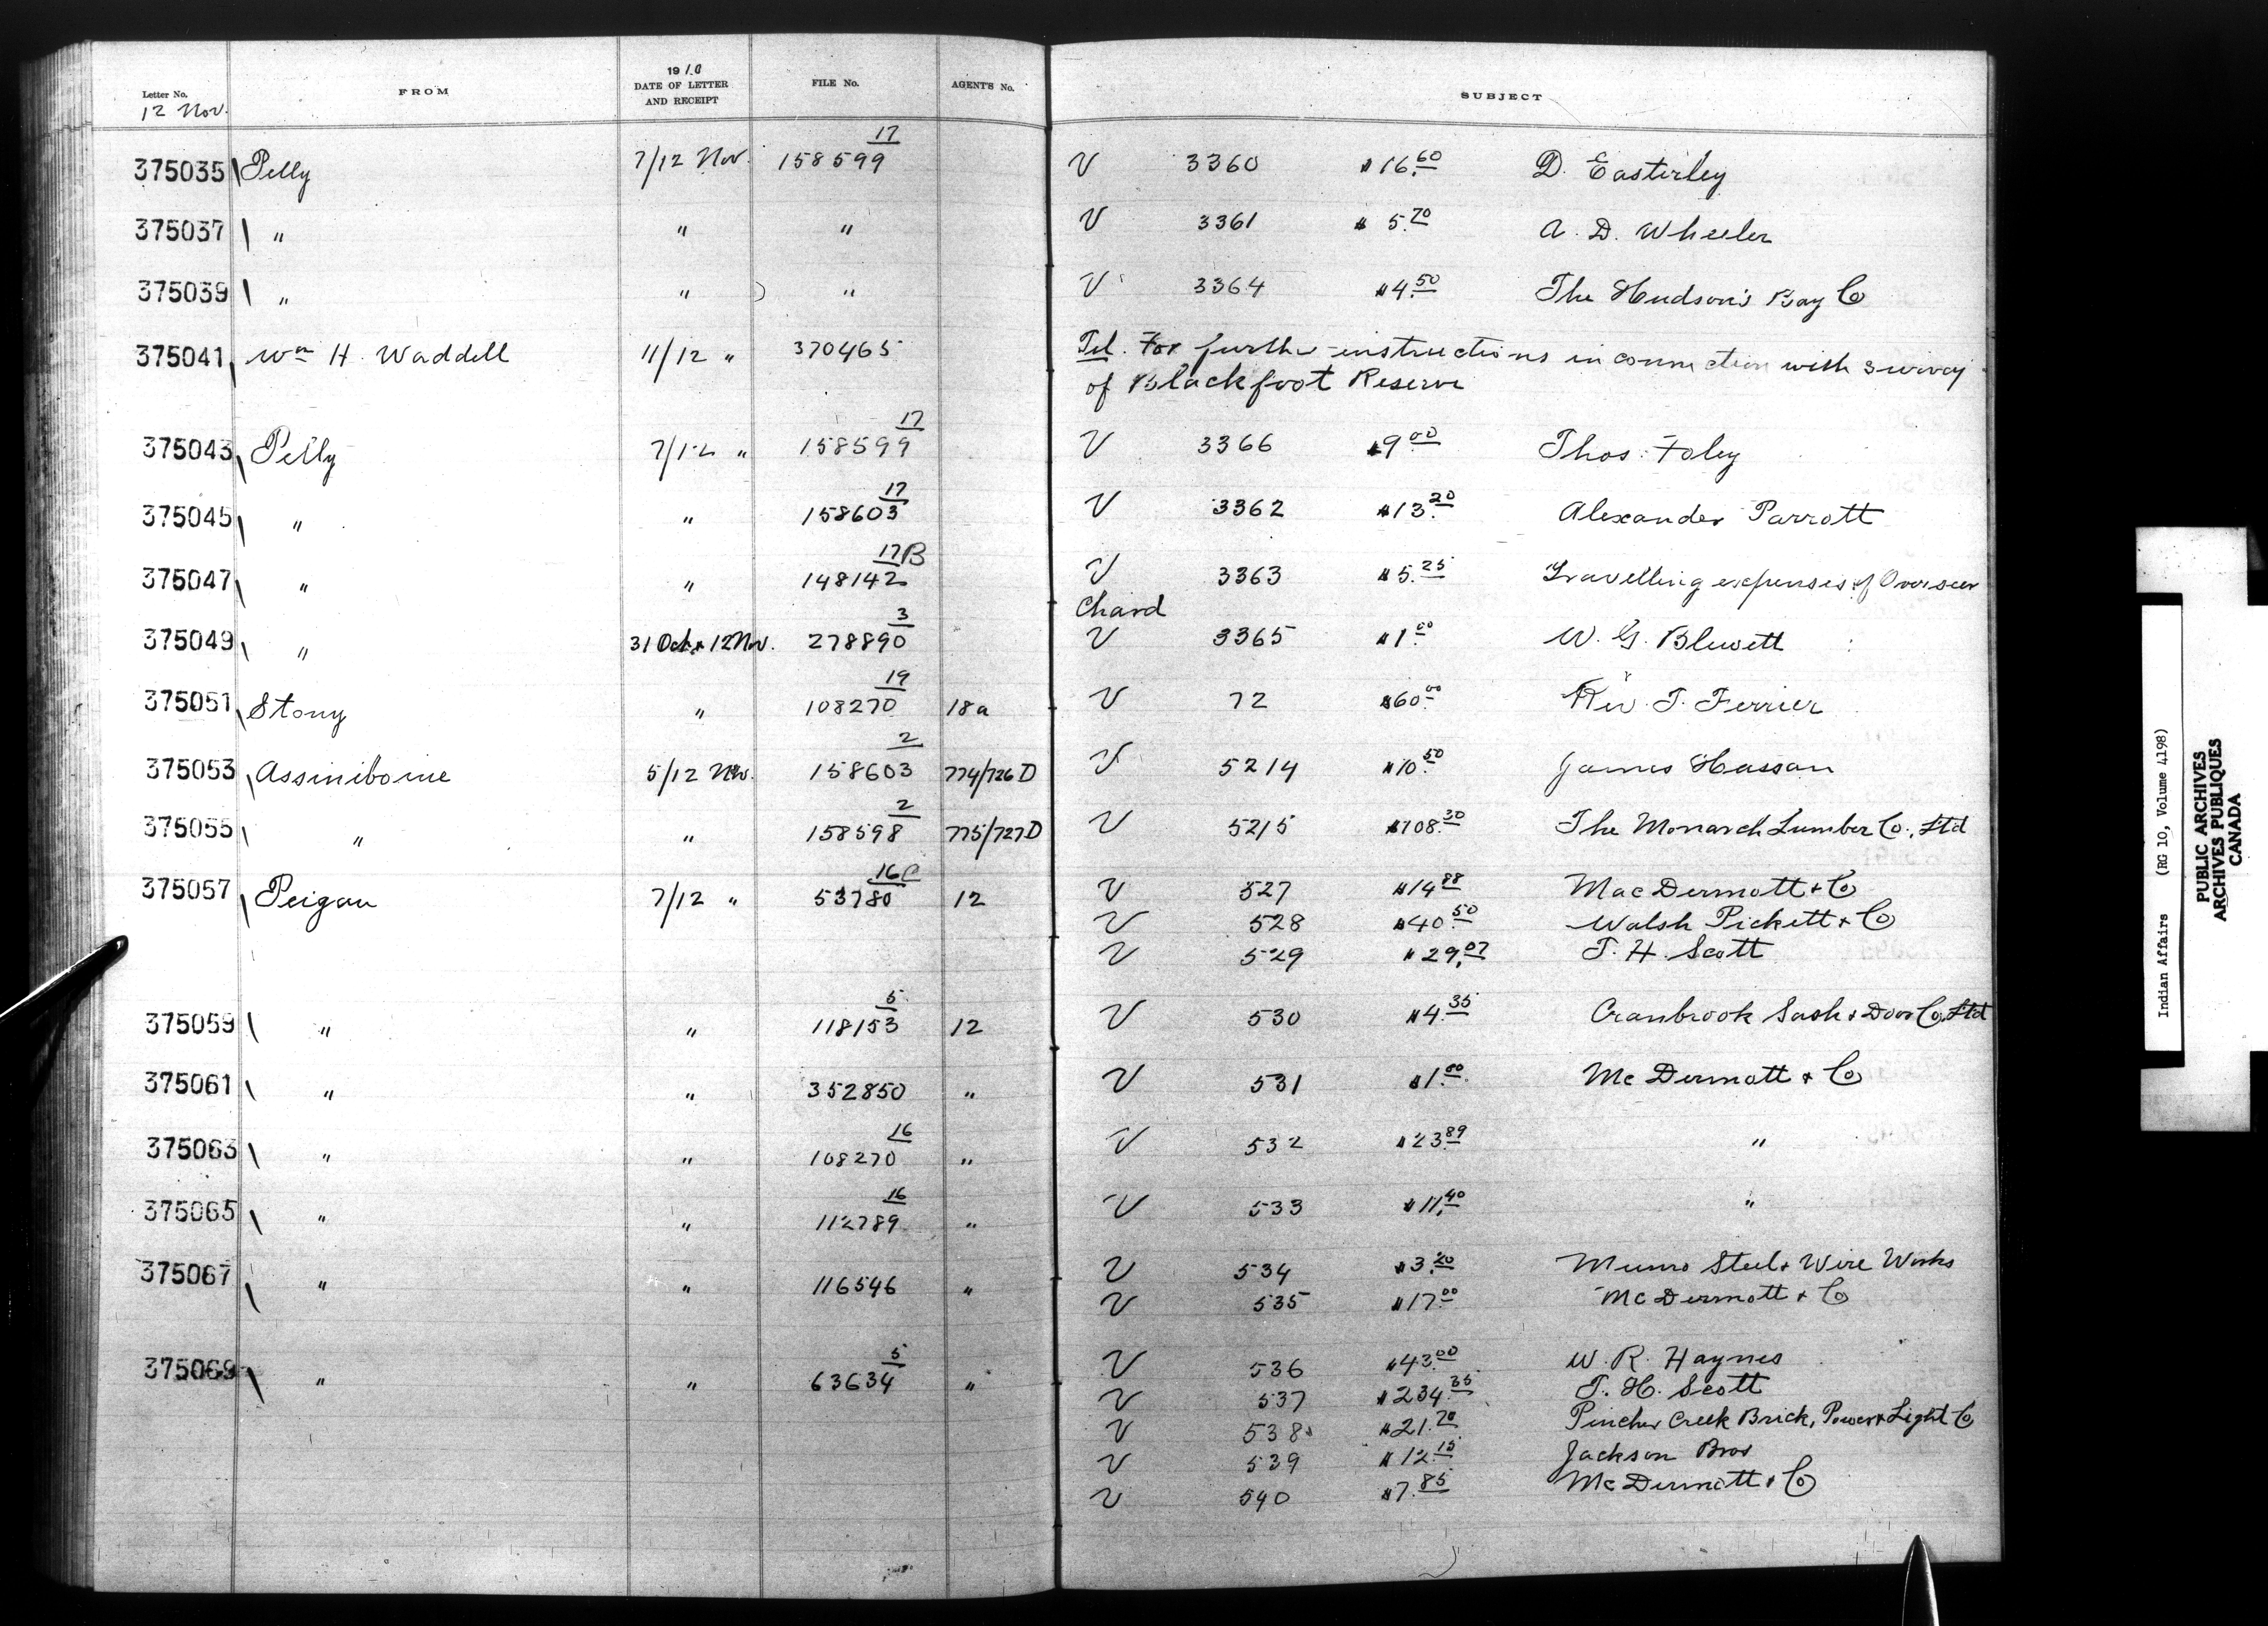 Letter No. FROM 1910 DATE OF LETTER AND RECEIPT FILE No. AGENT'S No. SUBJECT
12 Nov.
375035 Pelly 7/12 Nov. 158599 17 V 3360 $16.60 D. Easterley
375037 " " " V 3361 $5.70 A. D. Wheeler
375039 " " " V 3364 $4.50 The Hudson's Bay Co
375041 Wm H. Waddell 11/12 " 370465 Tel. For further instructions in connection with survey
of Blackfoot Reserve
375043 Pelly 7/12 " 158599 17 V 3366 $9.00 Thos. Foley
375045 " " 158603 17 V 3362 $13.20 Alexander Parrott
375047 " " 148142 17B V 3363 $5.25 Travelling expenses of Overseer
Chard
375049 " 31 Oct & 12 Nov. 278890 3 V 3365 $1.00 W. G. Blewett
375051 Stony " 108270 19 18a V 72 $60.00 Rev. T. Ferrier
375053 Assiniboine 5/12 Nov. 158603 2 774/726D V 5214 $10.50 James Hassan
375055 " " 158598 2 775/727D V 5215 $108.30 The Monarch Lumber Co., Ltd
375057 Peigan 7/12 " 53780 16C 12 V 527 $14.88 MacDermott & Co
V 528 $40.50 Walsh Pickett & Co
V 529 $29.07 T. H. Scott
375059 " " 118153 5 12 V 530 $4.35 Cranbrook Sash & Door Co Ltd
375061 " " 352850 " V 531 $1.00 McDermott & Co
375063 " " 108270 16 " V 532 $23.89 "
375065 " " 112789 16 " V 533 $11.40 "
375067 " " 116546 " V 534 $3.20 Munro Steel & Wire Works
V 535 $17.00 McDermott & Co
375069 " " 63634 5 " V 536 $43.00 W. R. Haynes
V 537 $234.35 T. H. Scott
V 538 $21.70 Pincher Creek Brick, Power & Light Co
V 539 $12.15 Jackson Bros
V 540 $7.85 McDermott & Co
Indian Affairs (RG 10, Volume 4198)
PUBLIC ARCHIVES
ARCHIVES PUBLIQUES
CANADA